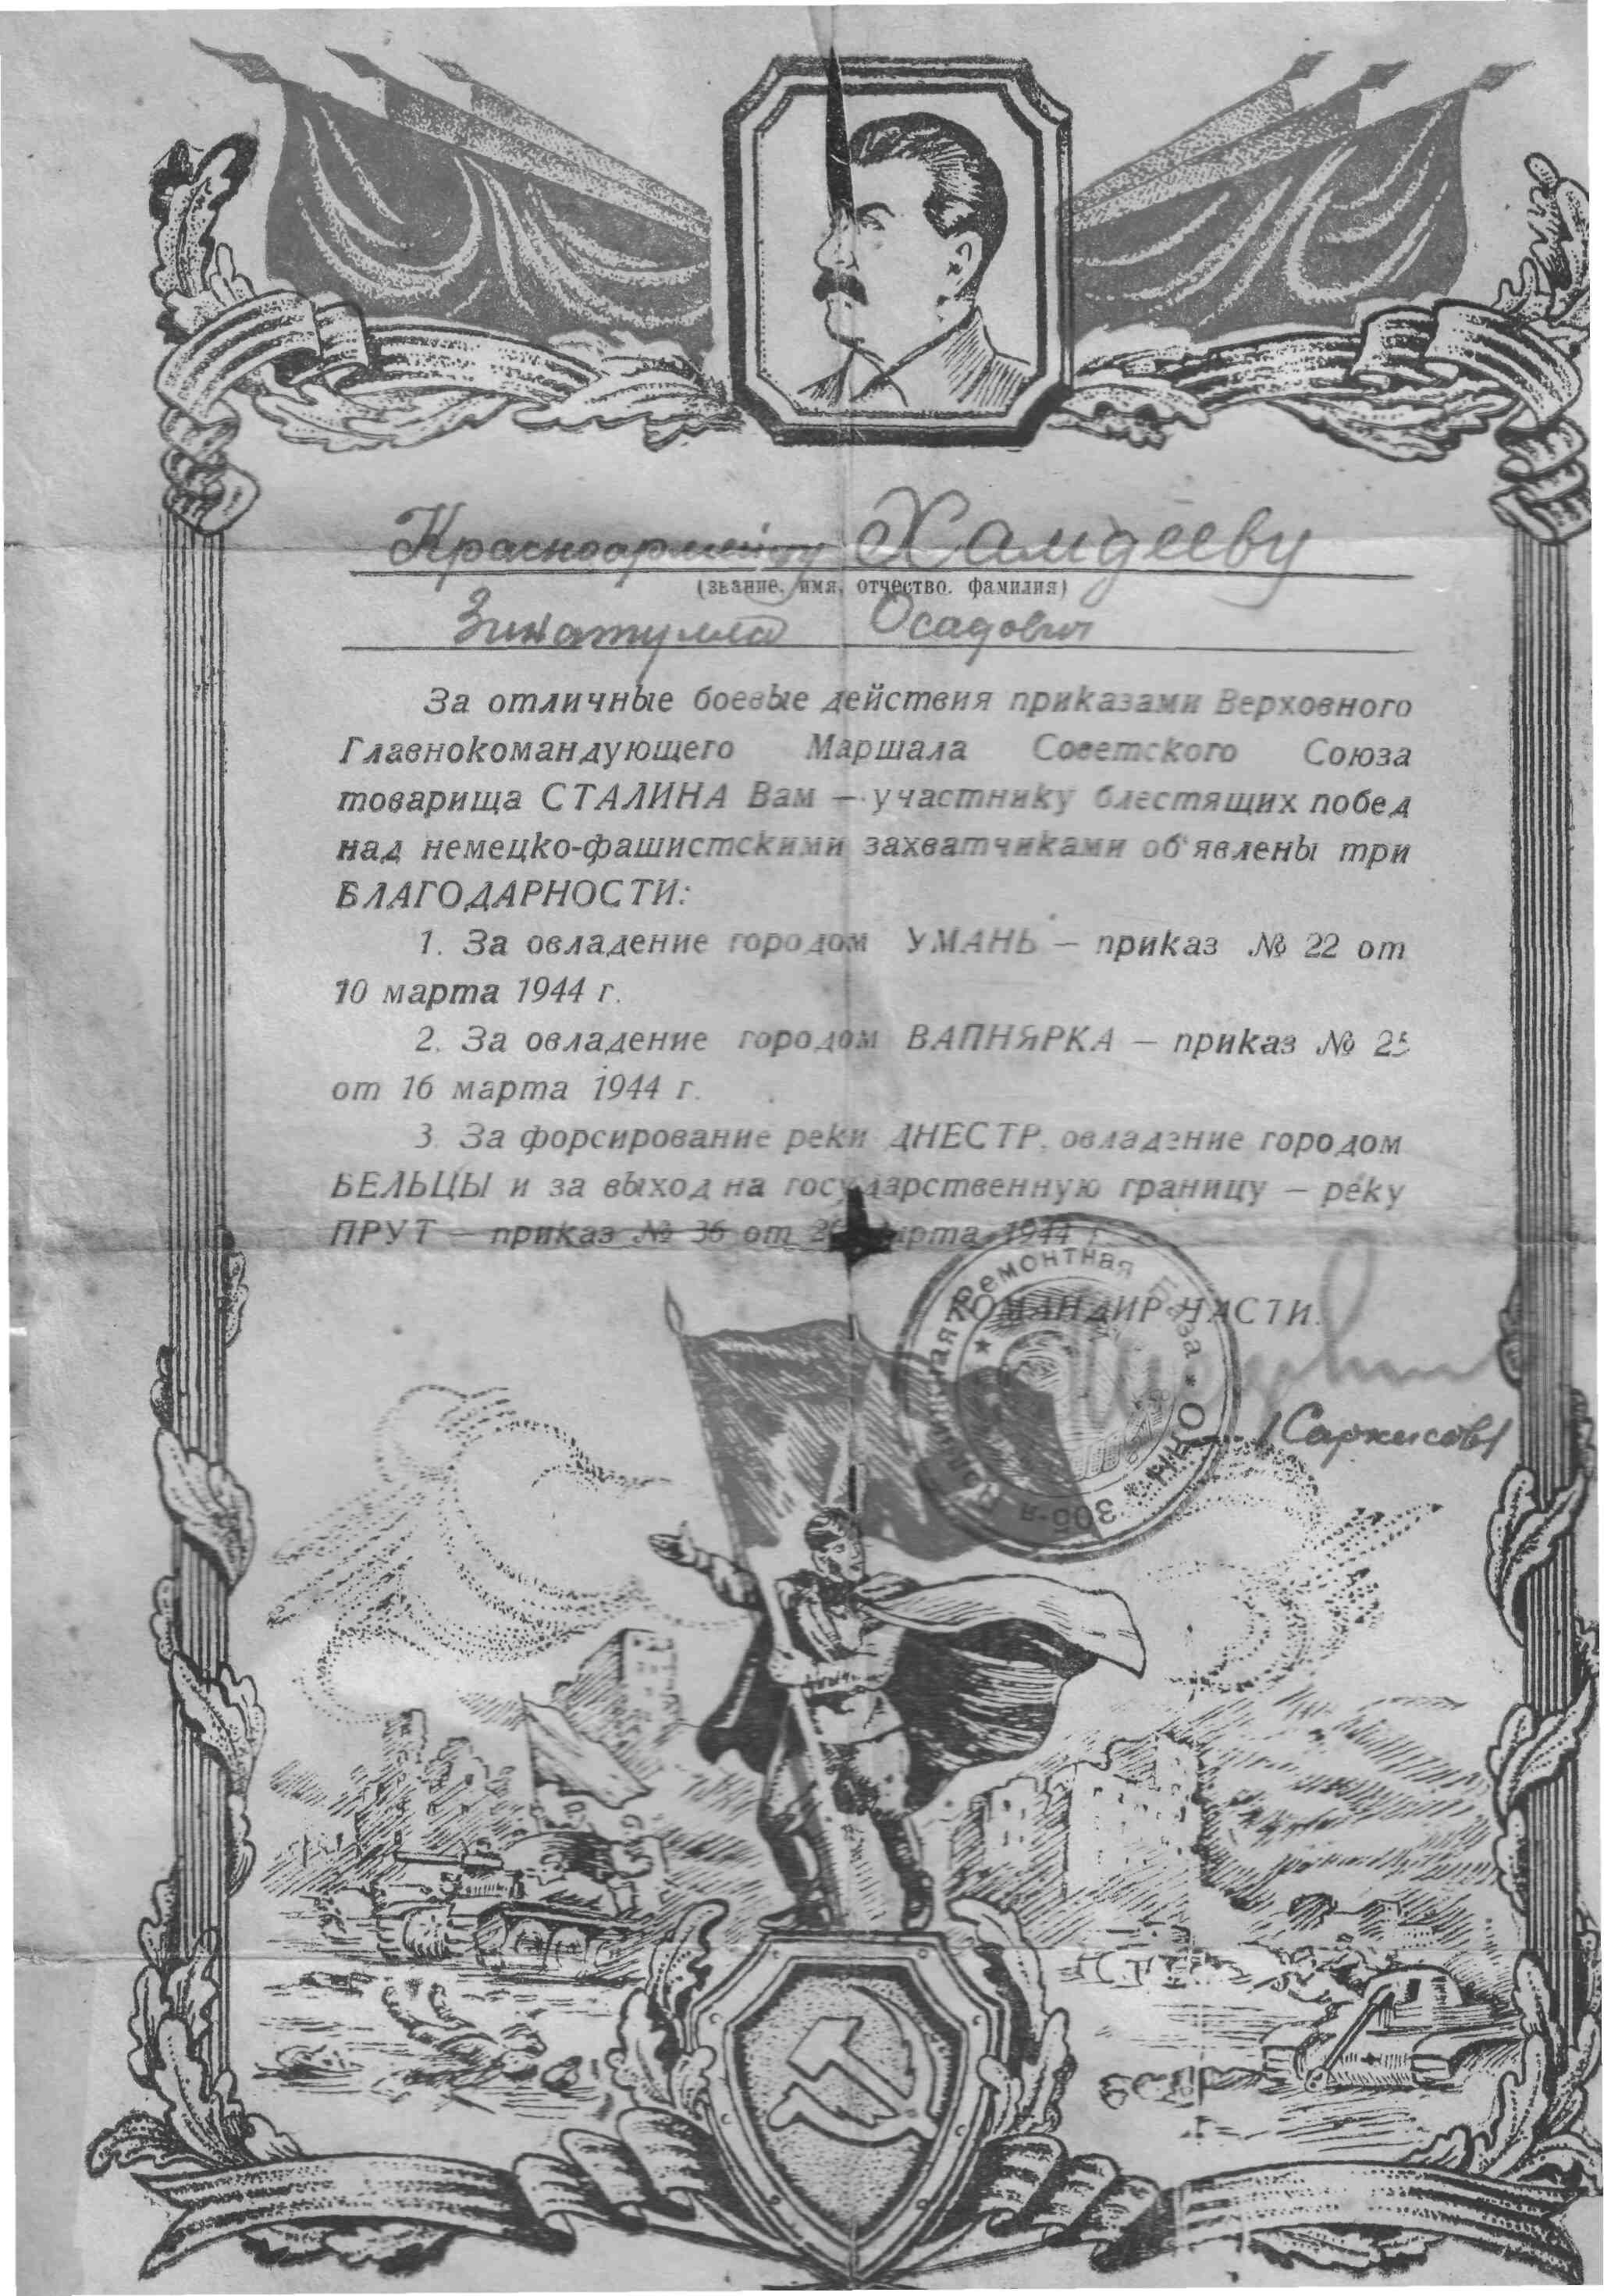 Красноармейцу Хамдееву
(звание, имя, отчество, фамилия)
Зинатулла Осадович
За отличные боевые действия приказами Верховного
Главнокомандующего Маршала Советского Союза
товарища СТАЛИНА Вам — участнику блестящих побед
над немецко-фашистскими захватчиками об'явлены три
БЛАГОДАРНОСТИ:
1. За овладение городом УМАНЬ — приказ № 22 от
10 марта 1944 г.
2. За овладение городом ВАПНЯРКА — приказ № 25
от 16 марта 1944 г.
3. За форсирование реки ДНЕСТР, овладение городом
БЕЛЬЦЫ и за выход на государственную границу — реку
ПРУТ — приказ № 36 от марта 1944 г.
КОМАНДИР ЧАСТИ.
/Саркисов/
Ремонтная База * 306-я